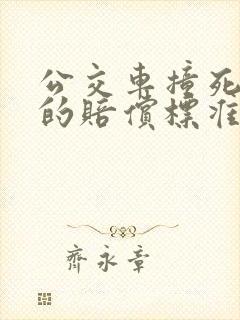 公交車撞死
的賠償標准
齊永章